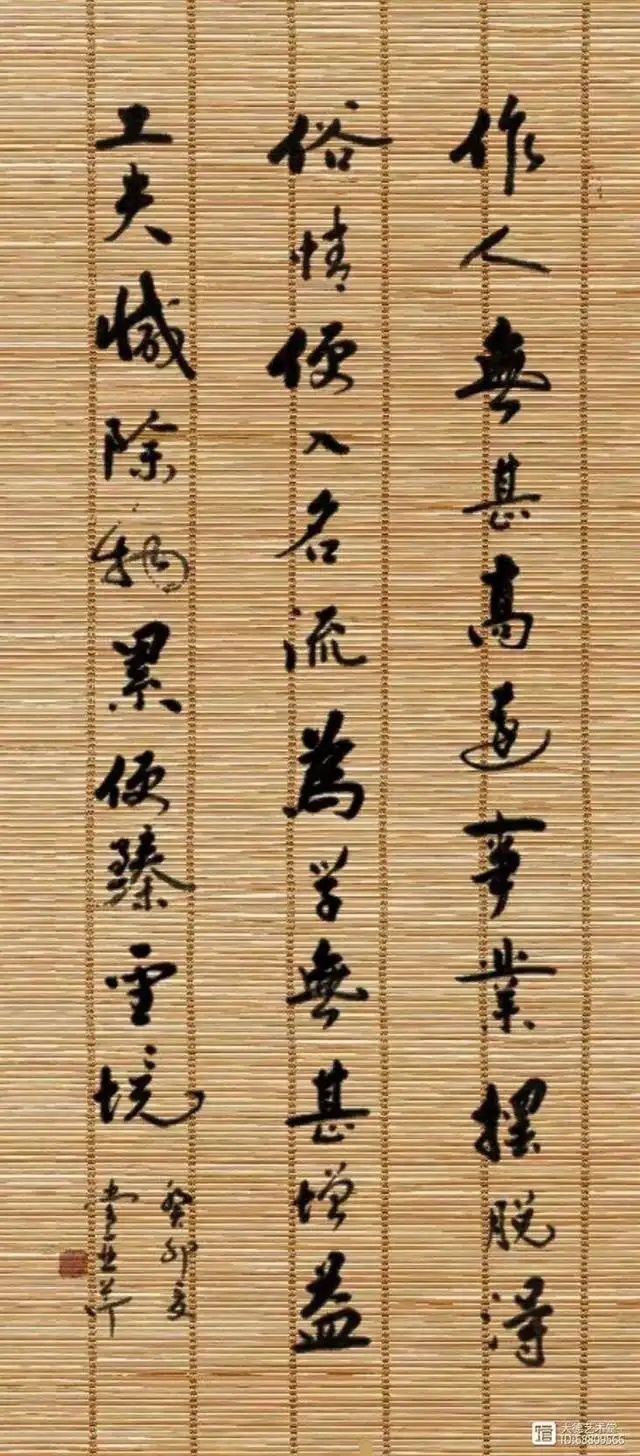 作人無甚高遠事業擺脫得
俗情便入名流為学無甚增益
工夫減除物累便臻聖境
癸卯夏
大德艺术馆
ID:68809566